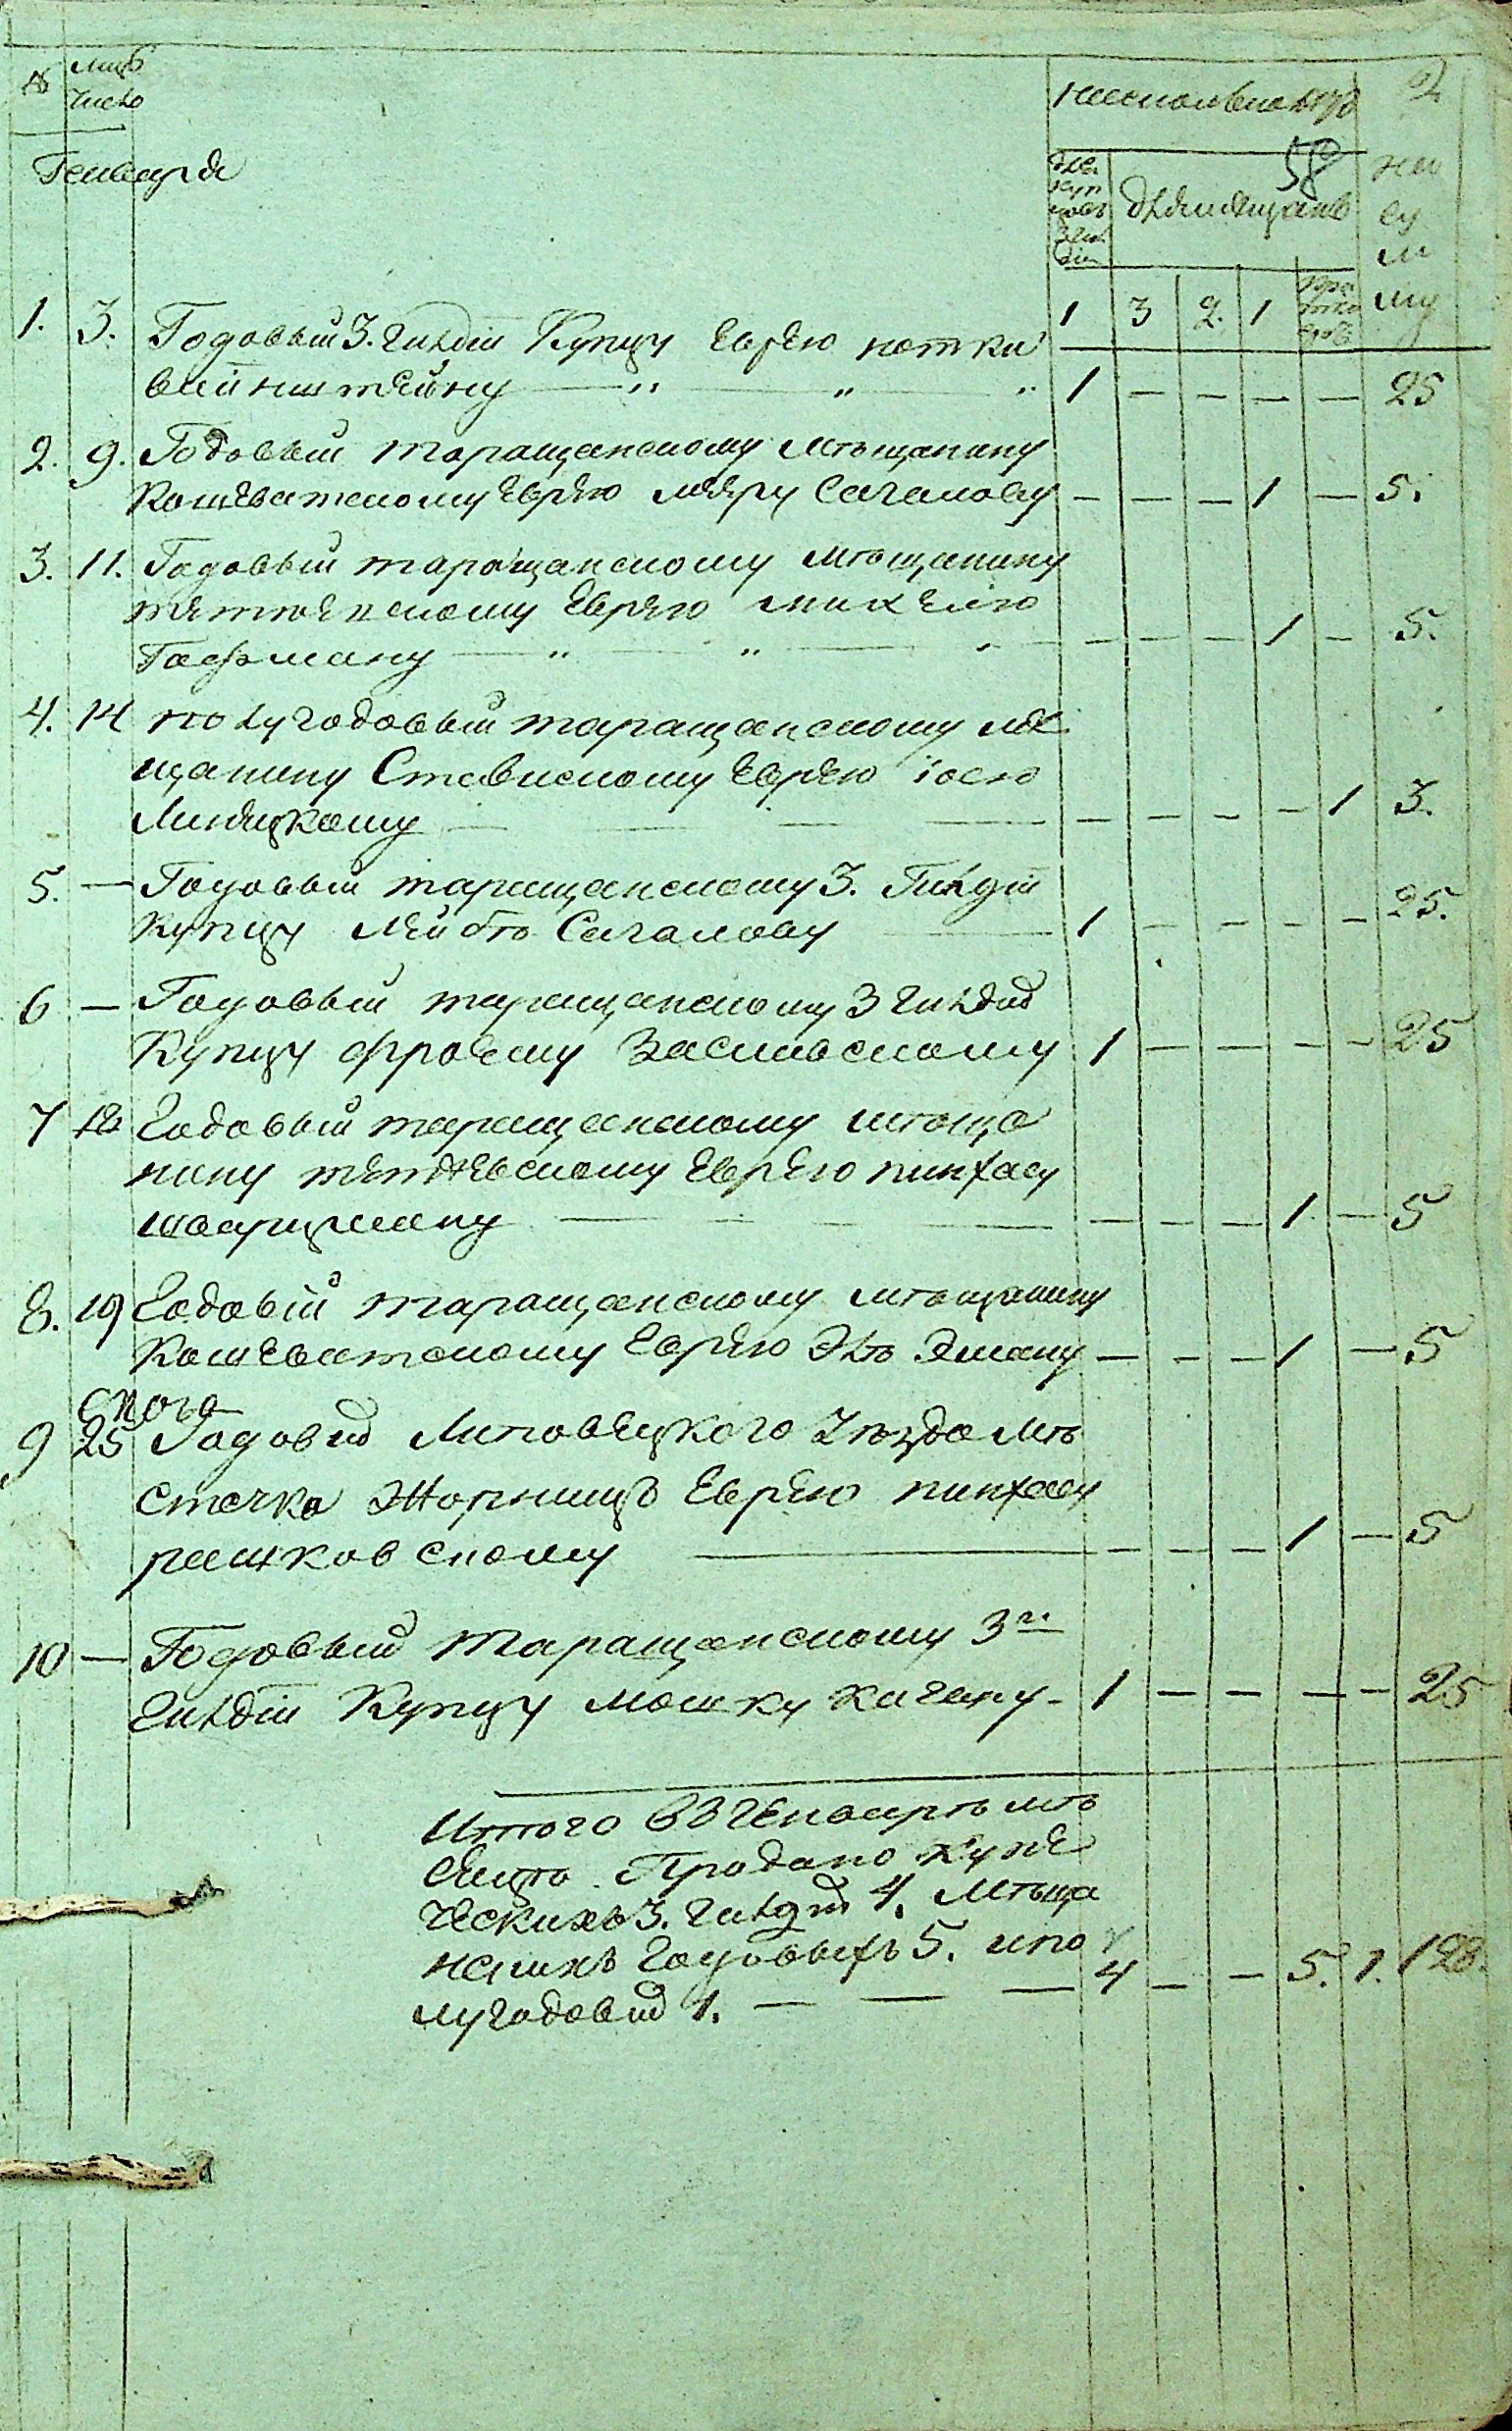 № мцъ число
Генваря
насколько лѣтъ 2
58
для купцовъ 3 гил діи для мѣщанъ на су м му
1 3 2 1 кра тко сроч
1. 3. Годовый 3. гилдіи Купцу Еврею нотки
вайнштейну — „ „ „ 1 — — — — 25
2. 9. Годовый таращанскому мѣщанину
Кошеватскому Еврею меяру Сагалову — — — 1 — 5.
3. 11. Годовый таращанскому мѣщанину
тетіевскому Еврею михелю
Гофману — „ „ — — — 1 — 5.
4. 14 полугодовый таращанскому мѣ
щанину Ставискому Еврею іосю
Линецкому — — — — — — — 1 3.
5. — Годовый таращанскому 3. Гилдіи
Купцу Лейбѣ Сагалову — 1 — — — — 25.
6 — Годовый таращанскому 3 гилдіи
Купцу фроему Заславскому 1 — — — — 25
7 18 Годовый таращанскому мѣща
нину тетіевскому Еврею пинхасу
шварцману — — — — — 1 — 5
8. 19 Годовій таращанскому мѣщанину
Кошеватскому Еврею Элѣ Эману — — — 1 — 5
9 25 Годовій Липовецкого Уѣзда мѣ
стечка Жорнищъ Еврею пинхасу
рашковскому — — — — 1 — 5
10 — Годовый таращанскому 3й
гилдіи Купцу мошку кагану — 1 — — — — 25
Итого въ генварѣ мѣ
сяцѣ Продано купе
ческихъ 3. гилдіи 4. Мѣща
нскихъ годовыхъ 5. и по
лугодовій 1. — — — 4 — — 5. 1. 128.